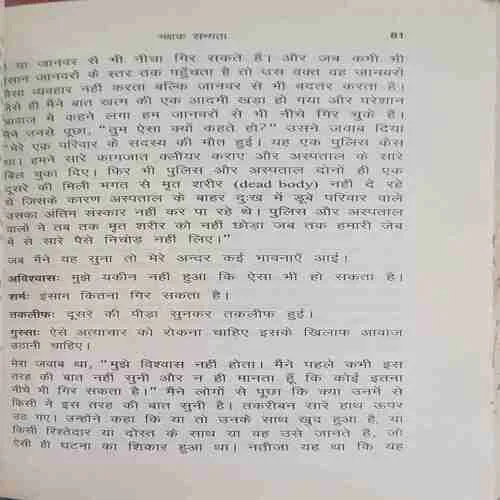 भ्रष्टाक सभ्यता 81
। या जानवर से भी नीचा गिर सकते हैं। और जब कभी भी
इंसान जानवरों के स्तर तक पहुँचता है तो उस वक्त वह जानवरों
जैसा व्यवहार नहीं करता बल्कि जानवर से भी बदतर करता है।
जैसे ही मैंने बात खत्म की एक आदमी खड़ा हो गया और परेशान
आवाज में कहने लगा हम जानवरों से भी नीचे गिर चुके हैं।
मैंने उनसे पूछा, "तुम ऐसा क्यों कहते हो?" उसने जवाब दिया
"मेरे एक परिवार के सदस्य की मौत हुई। यह एक पुलिस केस
था। हमने सारे कागजात क्लीयर कराए और अस्पताल के सारे
बिल चुका दिए। फिर भी पुलिस और अस्पताल दोनों ही एक
दूसरे की मिली भगत से मृत शरीर (dead body) नहीं दे रहे
थे जिसके कारण अस्पताल के बाहर दुःख में डूबे परिवार वाले
उसका अंतिम संस्कार नहीं कर पा रहे थे। पुलिस और अस्पताल
वालों ने तब तक मृत शरीर को नहीं छोड़ा जब तक हमारी जेब
में से सारे पैसे निचोड़ नहीं लिए।"
जब मैंने यह सुना तो मेरे अन्दर कई भावनाएँ आई।
अविश्वासः मुझे यकीन नहीं हुआ कि ऐसा भी हो सकता है।
शर्मः इंसान कितना गिर सकता है।
तकलीफः दूसरे की पीड़ा सुनकर तकलीफ हुई।
गुस्साः ऐसे अत्याचार को रोकना चाहिए इसके खिलाफ आवाज
उठानी चाहिए।
मेरा जवाब था, "मुझे विश्वास नहीं होता। मैंने पहले कभी इस
तरह की बात नहीं सुनी और न ही मानता हूँ कि कोई इतना
नीचे भी गिर सकता है।" मैंने लोगों से पूछा कि क्या उनमें से
किसी ने इस तरह की बात सुनी है। तकरीबन सारे हाथ ऊपर
उठ गए। उन्होंने कहा कि या तो उनके साथ खुद हुआ है, या
किसी रिश्तेदार या दोस्त के साथ या वह उसे जानते है, जो
ऐसी ही घटना का शिकार हुआ था। नतीजा यह था कि यह